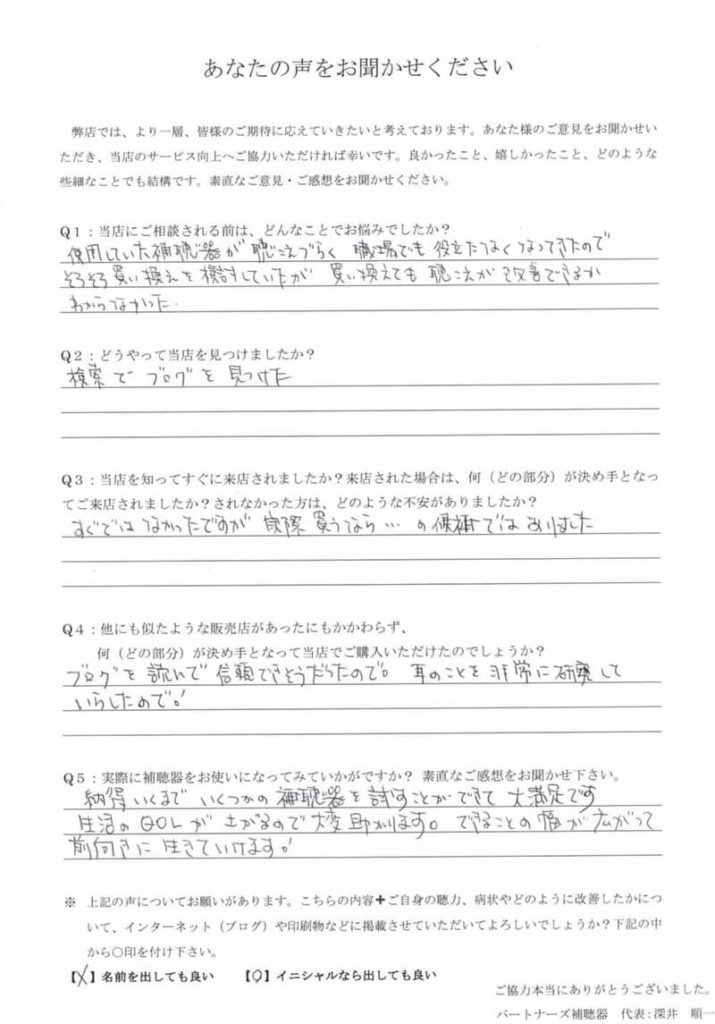 あなたの声をお聞かせください
弊店では、より一層、皆様のご期待に応えていきたいと考えております。あなた様のご意見をお聞かせい
ただき、当店のサービス向上へご協力いただければ幸いです。良かったこと、嬉しかったこと、どのような
些細なことでも結構です。素直なご意見・ご感想をお聞かせください。
Q1：当店にご相談される前は、どんなことでお悩みでしたか？
使用していた補聴器が 聴こえづらく 職場でも役立たなくなってきたので
そろそろ買い換えを検討していたが 買い換えても 聴こえが改善できるか
わからなかった.
Q2：どうやって当店を見つけましたか？
検索で ブログを 見つけた
Q3：当店を知ってすぐに来店されましたか？来店された場合は、何（どの部分）が決め手となっ
てご来店されましたか？されなかった方は、どのような不安がありましたか？
すぐでは なかったですが 実際 買うなら… の候補ではありました
Q4：他にも似たような販売店があったにもかかわらず、
何（どの部分）が決め手となって当店でご購入いただけたのでしょうか？
ブログを 読んで 信頼できそうだったので。 耳のことを 非常に研究して
いらしたので。!
Q5：実際に補聴器をお使いになってみていかがですか？ 素直なご感想をお聞かせ下さい。
納得いくまで いくつかの 補聴器を試すことができて 大満足です
生活のQOLが 上がるので 大変 助かります。 できることの幅が広がって
前向きに 生きていけます。!
※ 上記の声についてお願いがあります。こちらの内容＋ご自身の聴力、病状やどのように改善したかにつ
いて、インターネット（ブログ）や印刷物などに掲載させていただいてよろしいでしょうか？下記の中
から〇印を付け下さい。
【X】名前を出しても良い 【O】イニシャルなら出しても良い
ご協力本当にありがとうございました。
パートナーズ補聴器 代表：深井 順一